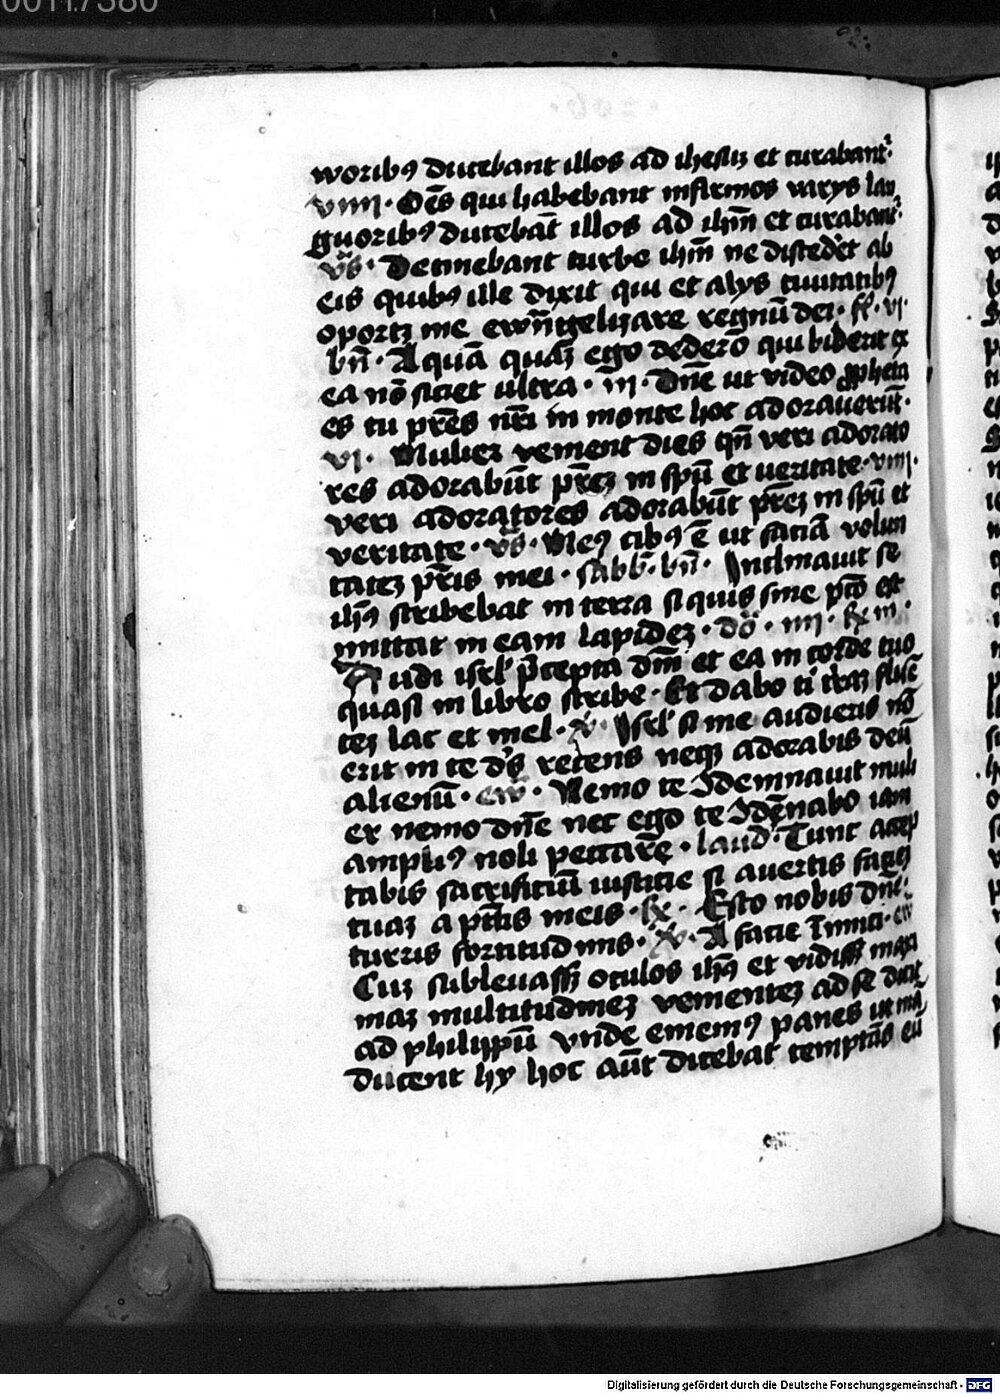 00117380
woribꝯ ducebant illos ad ihesū et curabantᷣ
viiii · Oēs qui habebant infirmos varys lan
guoribꝯ ducebāt illos ad ihm̄ et curabantᷣ
v̄s · Detinebant turbe ihm̄ ne discedēt ab
eis quibꝯ ille dixit qui et alys ciuitatibꝯ
oportꝫ me ewn̄gelizare regnū dei · fr̄ · vi ·
bn̄ · Aquā quaꝫ ego dedero qui biberit ex
ea nō siciet ultra · m · Dn̄e ut video ꝓpheta
es tu pr̄es nr̄i in monte hoc adorauerūt ·
vi · Mulier venient dies qn̄ veri adorato
res adorabūt pr̄eꝫ in spū et ueritate · viiii ·
veri adoratores adorabūt pr̄eꝫ in spū et
veritate · v̄s · Meꝯ cibꝯ ē ut faciā volun
tateꝫ pr̄is mei · sabb̄ · bn̄ · Inclinauit se
ih̄s scribebat in terra si quis sine pctō est
mittat in eam lapideꝫ · dō · iiii ·
Audi isrl̄ p̄cepta dm̄ et ea in corde tuo
quasi in libro scribe · Et dabo ti traꝫ fluē
teꝫ lac et mel · v̄ · Isrl̄ si me audieris nō
erit in te ds̄ recens neqꝫ adorabis deū
alienū · ew̄ · Nemo te ꝯdemnauit muli
er nemo dn̄e nec ego te ꝯdēnabo iam
ampliꝯ noli peccare · laud̄ · Tunc accep
tabis sacrificiū iusticie si auertis faciē
tuaꝫ a pctīs meis · Esto nobis dn̄e
turris fortitudinis · v̄ · A facie inimici · ew̄
Cuꝫ subleuassꝫ oculos ih̄s et vidissꝫ maxi
maꝫ multitudineꝫ venienteꝫ ad se dicit
ad philippū vnde ememꝯ panes ut mā
ducent hy hoc aūt dicebat temptās eū
Digitalisierung gefördert durch die Deutsche Forschungsgemeinschaft - DFG